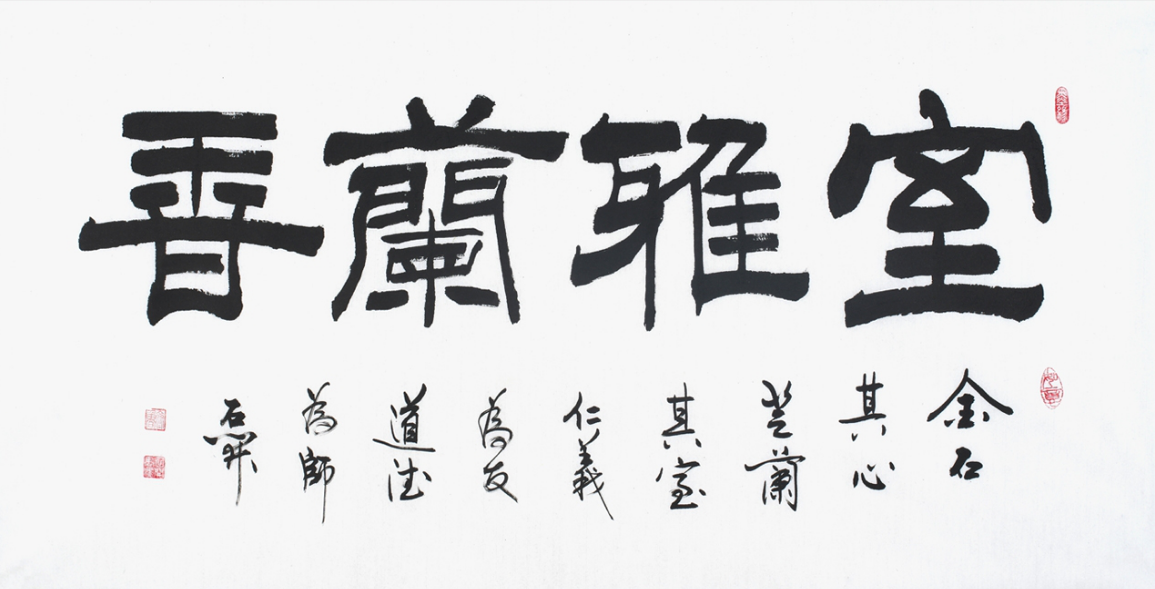 室雅蘭香
金石
其心
芝蘭
其室
仁義
為友
道德
為師